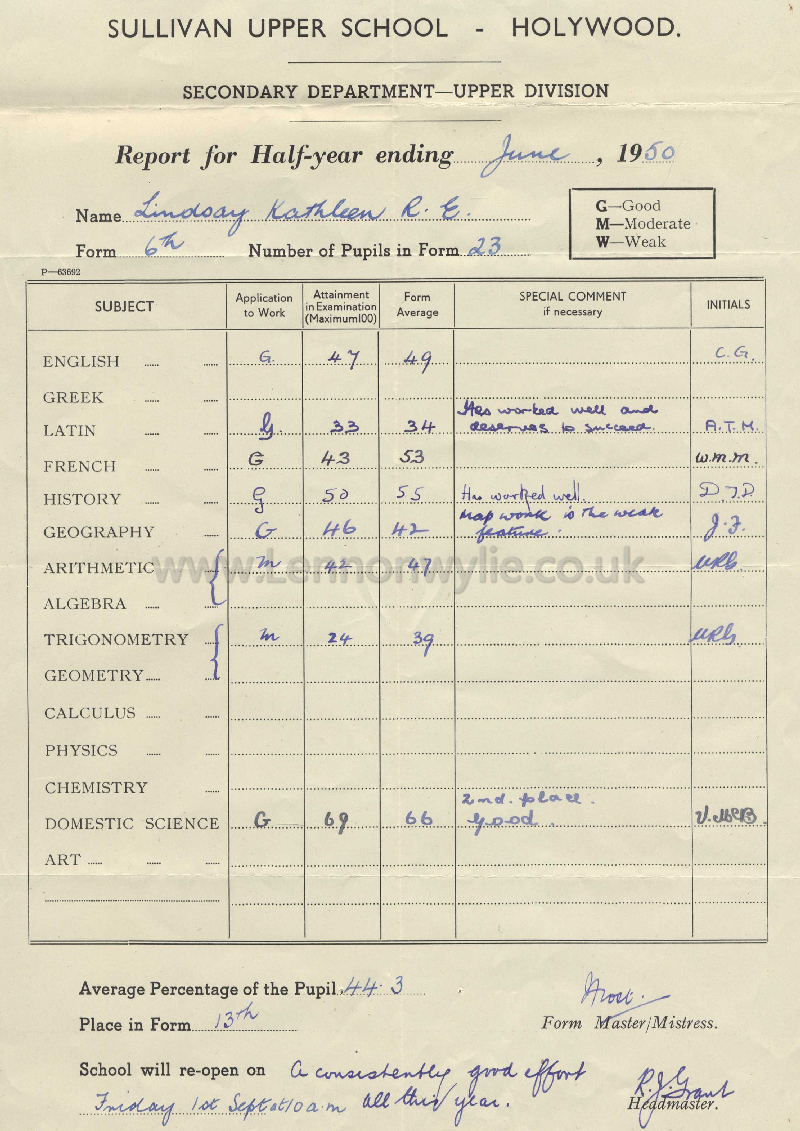 SULLIVAN UPPER SCHOOL - HOLYWOOD.
SECONDARY DEPARTMENT—UPPER DIVISION
Report for Half-year ending June, 1950
Name Lindsay Kathleen R. E.
Form 6th Number of Pupils in Form 23
G—Good
M—Moderate
W—Weak
P—63692
SUBJECT Application to Work Attainment in Examination (Maximum 100) Form Average SPECIAL COMMENT if necessary INITIALS
ENGLISH G 47 49 C.G.
GREEK
LATIN G 33 34 Has worked well and deserves to succeed. A.T.M.
FRENCH G 43 53 W.M.M.
HISTORY G 50 55 Has worked well. D.J.D
GEOGRAPHY G 46 42 Map work is the weak feature. J.F.
ARITHMETIC M 42 47
www.Lennonwylie.co.uk
ALGEBRA
TRIGONOMETRY M 24 39
GEOMETRY
CALCULUS
PHYSICS
CHEMISTRY
DOMESTIC SCIENCE G 69 66 2nd. place. Good. V. McB.
ART
Average Percentage of the Pupil 44.3
Place in Form 13th
Form Master/Mistress.
School will re-open on A consistently good effort
Friday 1st Sept at 10 a.m all this year.
R.J. Grant
Headmaster.